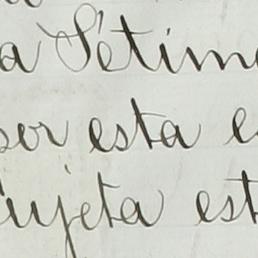 a Sétim
por esta e
sujeta est